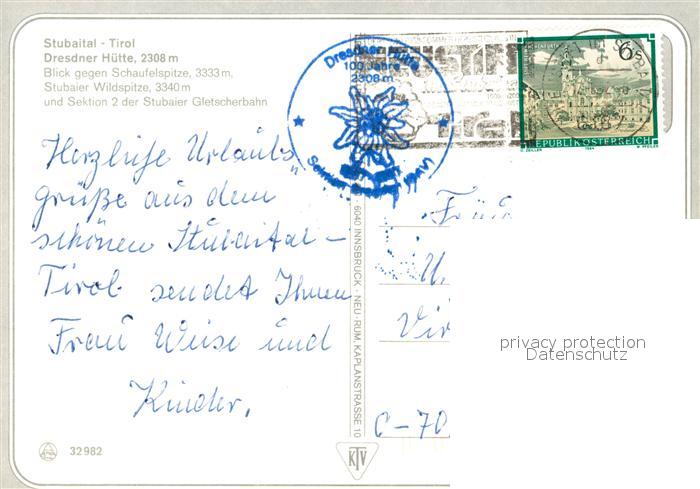 Stubaital - Tirol
Dresdner Hütte, 2308 m
Blick gegen Schaufelspitze, 3333 m,
Stubaier Wildspitze, 3340 m
und Sektion 2 der Stubaier Gletscherbahn
Dresdner Hütte
100 Jahre
2308 m
6
REPUBLIK ÖSTERREICH
Herzliche Urlaubs„
grüße aus dem
schönen Stubaital –
Tirol sendet Ihnen
Frau Weise und
Kinder.
6040 INNSBRUCK - NEU-RUM, KAPLANSTRASSE 10
privacy protection
Datenschutz
C-70
32982
KTV